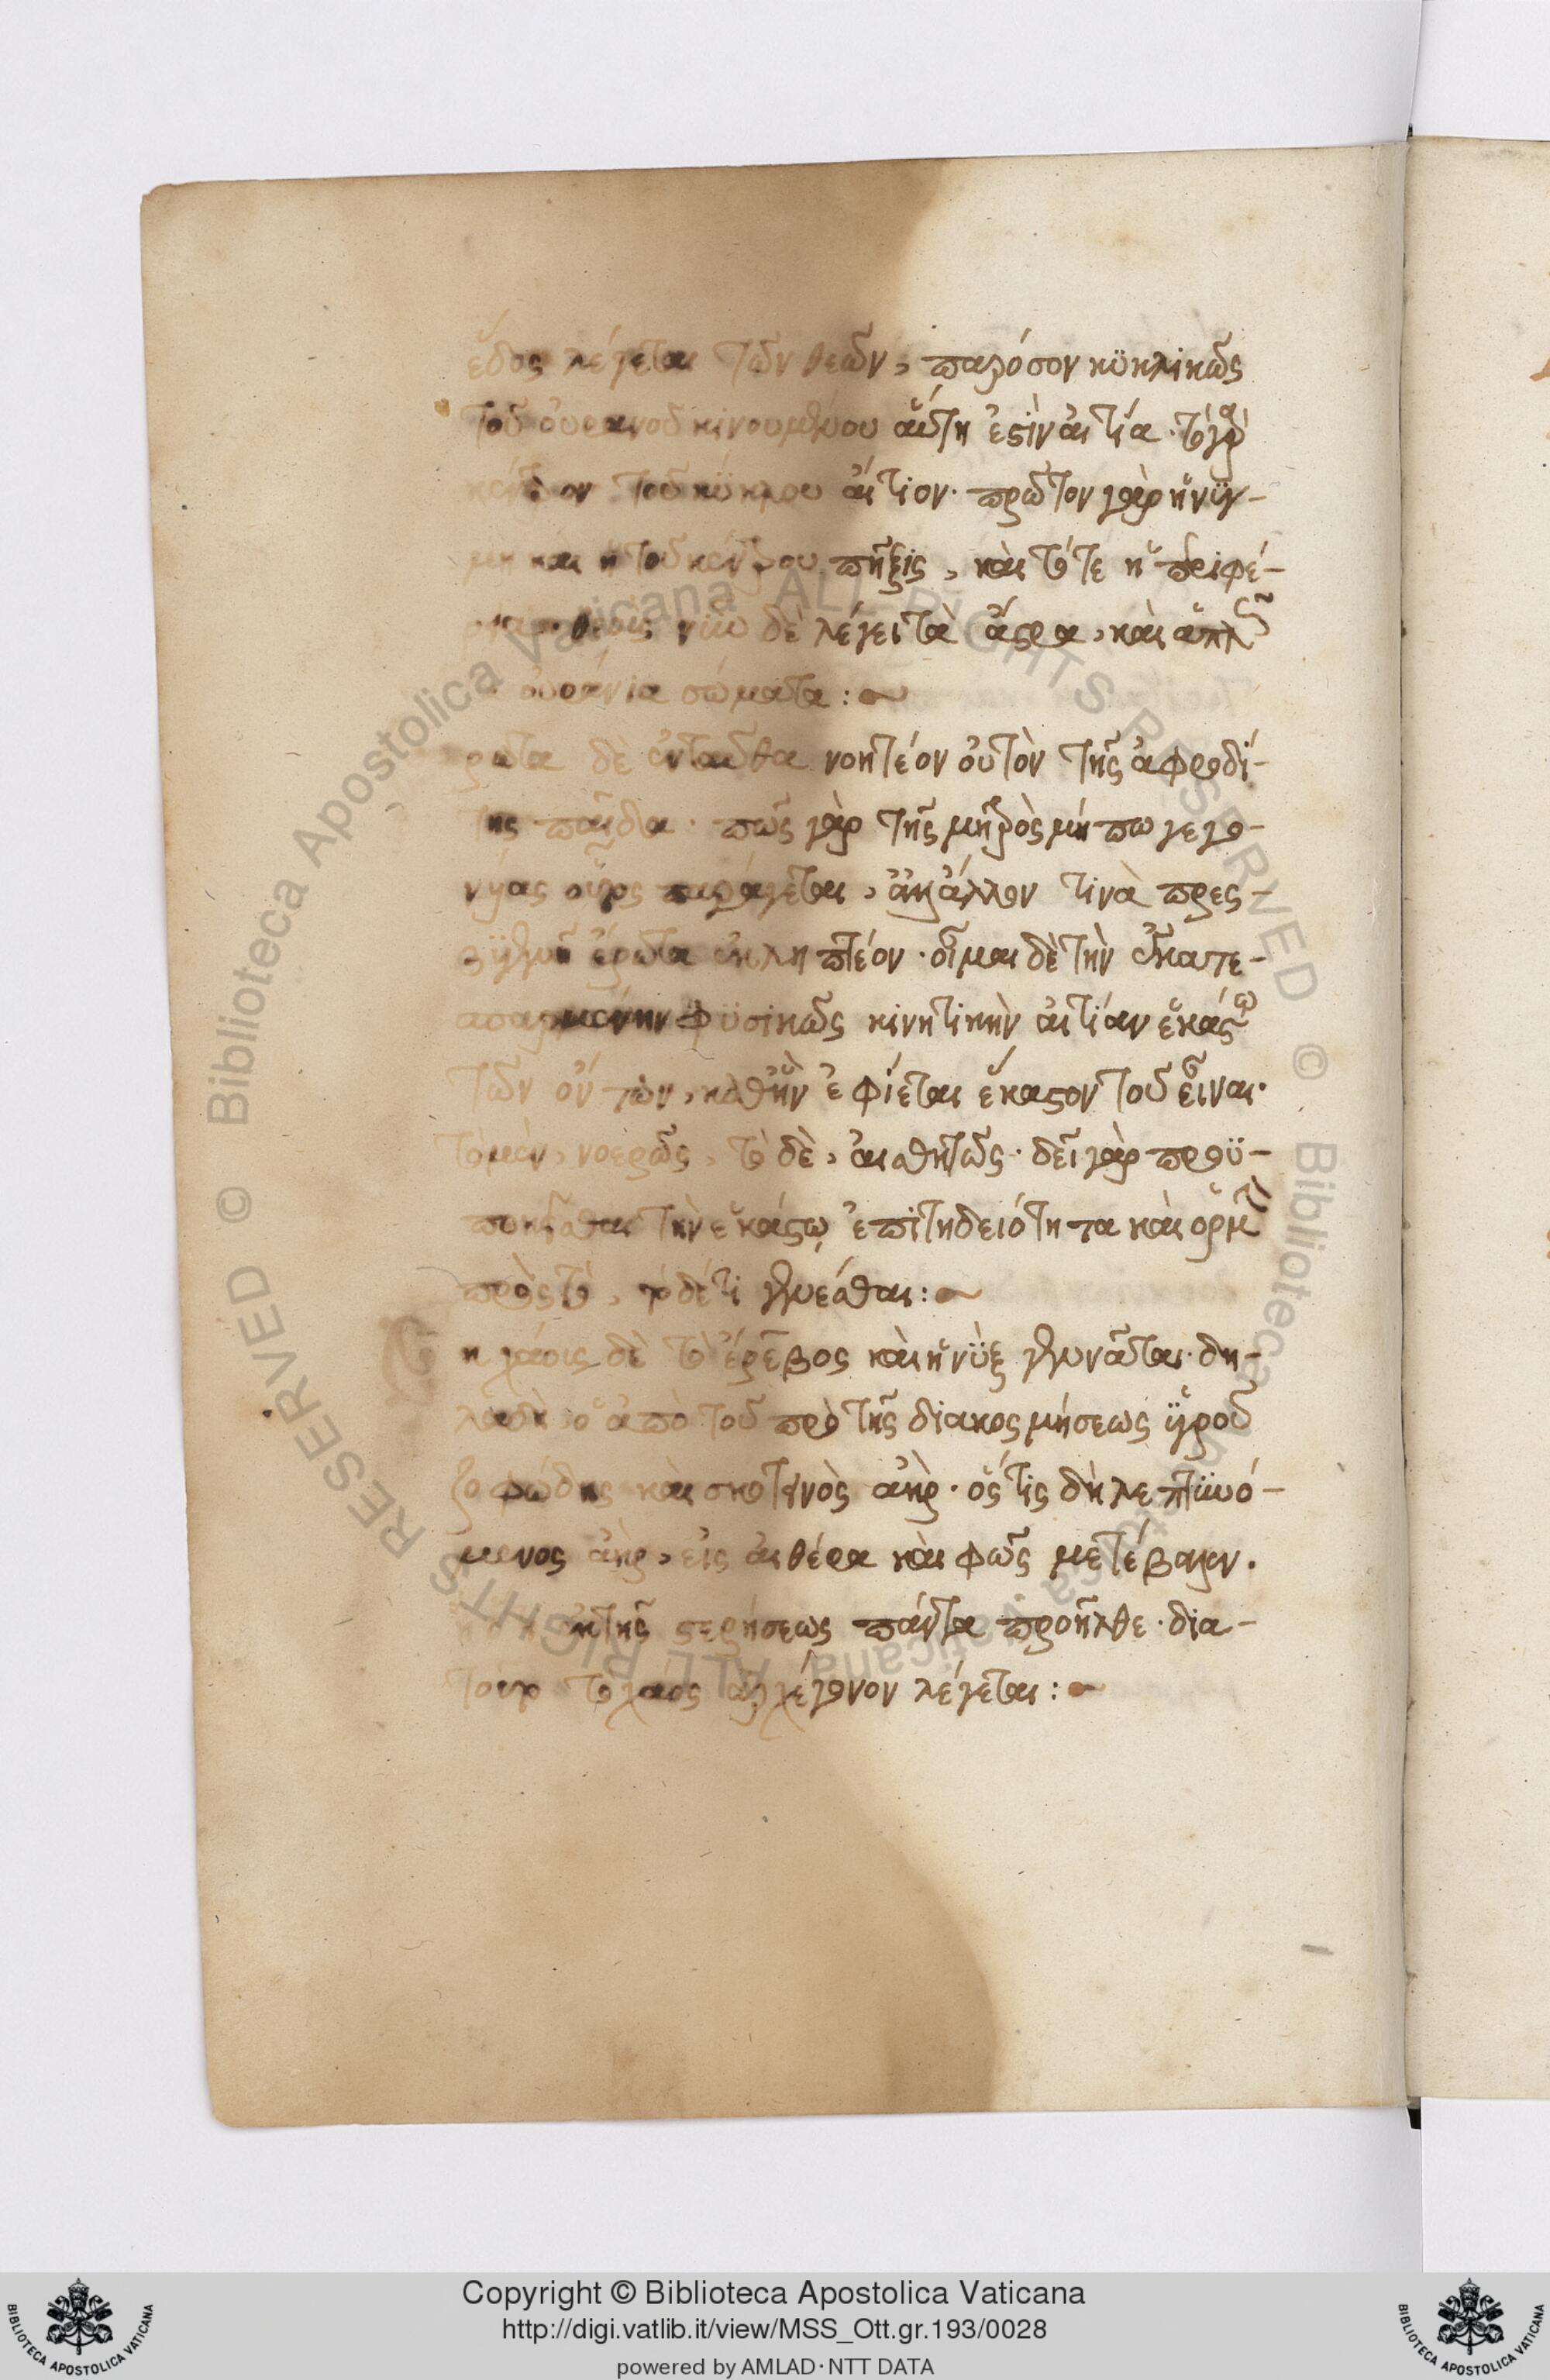 ἕδος λέγεται τῶν θεῶν, παρόσον κϋκλικῶς
τοῦ οὐρανοῦ κινουμένου αὕτη ἐστὶν αἰτία· τὸ γὰρ
κέντρον τοῦ κϋκλου αἴτιον· πρῶτον γὰρ ἡ νϋγ-
μὴ καὶ ἡ τοῦ κέντρου πῆξις, καὶ τότε ἡ περιφέ-
ρεια· θεοὺς νῦν δὲ λέγει τὰ ἄστρα, καὶ ἁπλῶς
οὐράνια σώματα :~
ρωτα δὲ ἐνταῦθα νοητέον οὐ τὸν τῆς ἀφροδί-
της παῖδα· πῶς γὰρ τῆς μητρὸς μήπω γεγο-
νυίας οὗτος παράγεται, ἀλλ' ἄλλον τινὰ πρεσ-
βϋγενῆ ἔρωτα ἐκληπτέον· οἶμαι δὲ τὴν ἐγκατε-
σπαρμένην φϋσικῶς κινητικὴν αἰτίαν ἑκάστω
τῶν ὄντων, καθ' ἣν ἐφίεται ἕκαστον τοῦ εἶναι·
τὸ μὲν, νοερῶς, τὸ δὲ, αἰσθητῶς· δεῖ γὰρ προϋ-
ποκεῖσθαι τὴν ἑκάστῳ ἐπιτηδειότητα καὶ ὁρμὴν
πρὸς τὸ, τόδέ τι γενέσθαι :~
κ χάοις δὲ τὸ ἔρεβος καὶ ἡ νϋξ γεννᾶται· δη-
λαδὴ ὁ ἀπὸ τοῦ πρὸ τῆς διακοσμήσεως ϋγροῦ
ζοφώδης καὶ σκοτεινὸς ἀὴρ· ὅς τις δὴ λεπτϋνό-
μενος ἀὴρ, εἰς αἰθέρα καὶ φῶς μετέβαλεν.
ἐκ τῆς στερήσεως πάντα προῆλθε· δια-
τοῦτο τὸ χάος ἀρχέγονον λέγεται :~
Copyright © Biblioteca Apostolica Vaticana
http://digi.vatlib.it/view/MSS_Ott.gr.193/0028
powered by AMLAD·NTT DATA